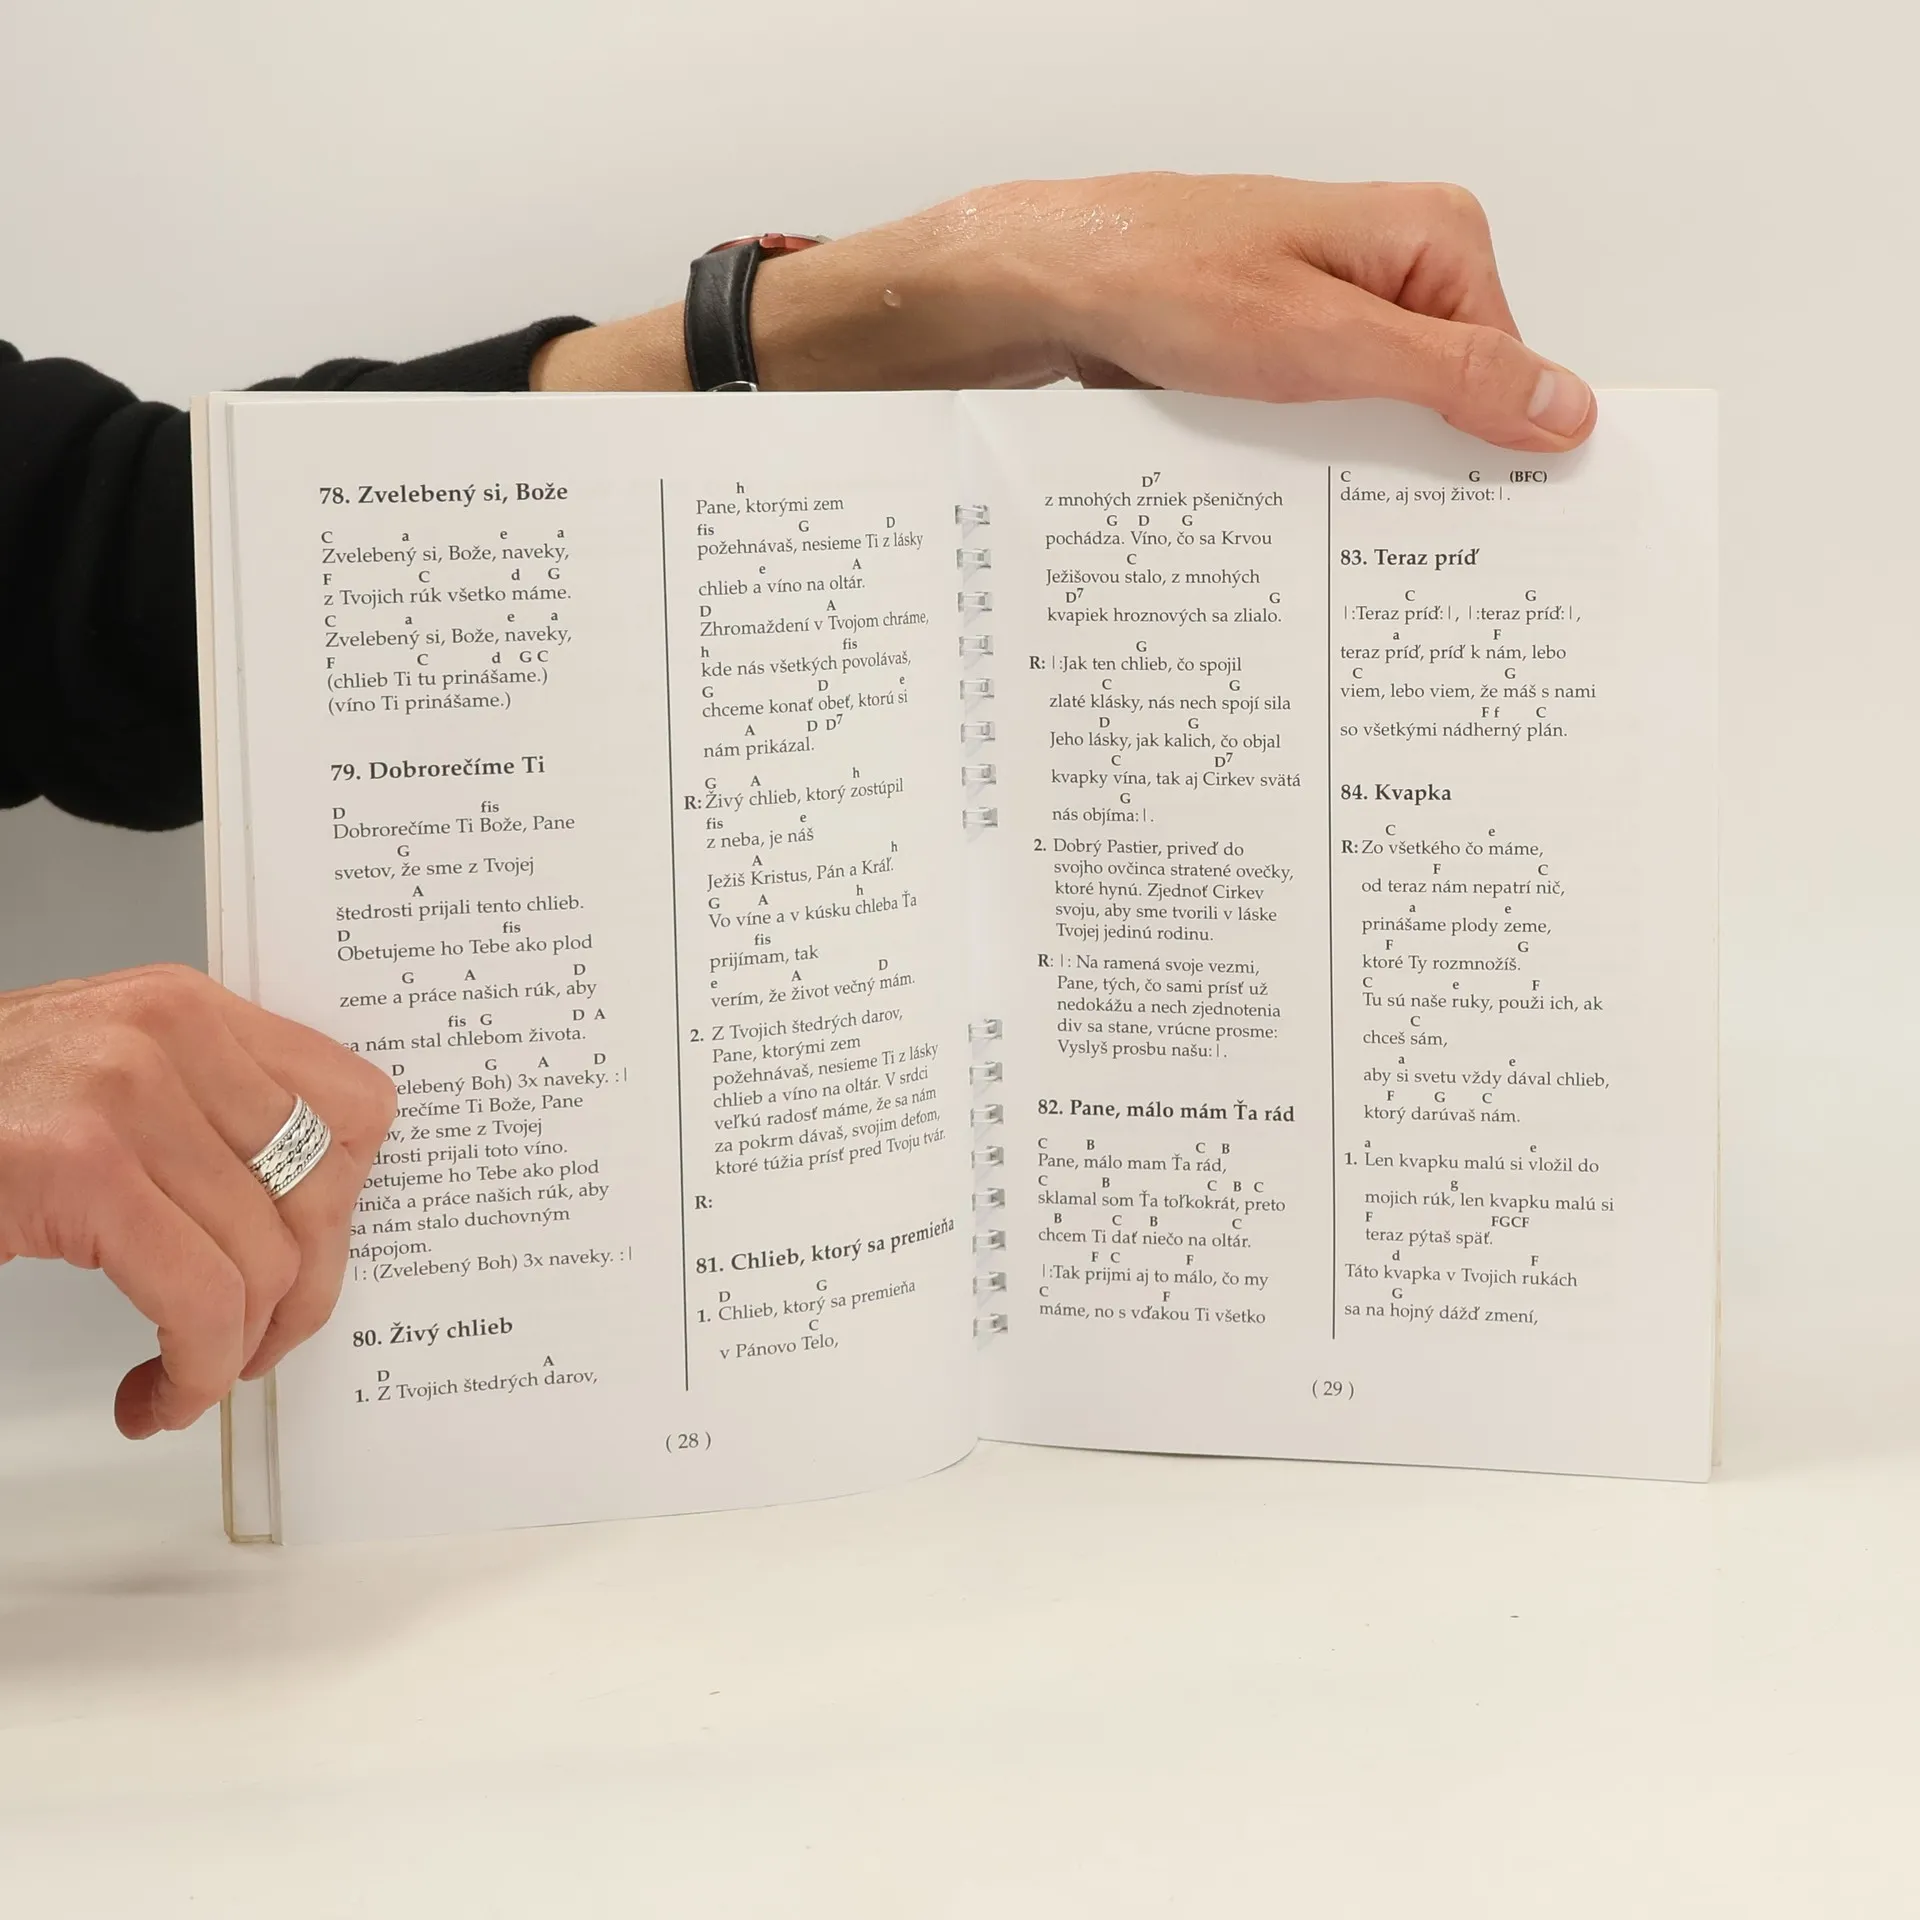 78. Zvelebený si, Bože
C a e a
Zvelebený si, Bože, naveky,
F C d G
z Tvojich rúk všetko máme.
C a e a
Zvelebený si, Bože, naveky,
F C d G C
(chlieb Ti tu prinášame.)
(víno Ti prinášame.)
79. Dobrorečíme Ti
D fis
Dobrorečíme Ti Bože, Pane
G
svetov, že sme z Tvojej
A
štedrosti prijali tento chlieb.
D fis
Obetujeme ho Tebe ako plod
G A D
zeme a práce našich rúk, aby
fis G D A
nám stal chlebom života.
D G A D
Boh) 3x naveky. :|
Ti Bože, Pane
že sme z Tvojej
prijali toto víno.
ho Tebe ako plod
a práce našich rúk, aby
sa nám stalo duchovným
nápojom.
|: (Zvelebený Boh) 3x naveky. :|
80. Živý chlieb
D A
1. Z Tvojich štedrých darov,
h
Pane, ktorými zem
fis G D
požehnávaš, nesieme Ti z lásky
e A
chlieb a víno na oltár.
D A
Zhromaždení v Tvojom chráme,
h fis
kde nás všetkých povolávaš,
G D e
chceme konať obeť, ktorú si
A D D7
nám prikázal.
G A h
R: Živý chlieb, ktorý zostúpil
fis e
z neba, je náš
A h
Ježiš Kristus, Pán a Kráľ.
G A h
Vo víne a v kúsku chleba Ťa
fis
prijímam, tak
e A D
verím, že život večný mám.
2. Z Tvojich štedrých darov,
Pane, ktorými zem
požehnávaš, nesieme Ti z lásky
chlieb a víno na oltár. V srdci
veľkú radosť máme, že sa nám
za pokrm dávaš, svojim deťom,
ktoré túžia prísť pred Tvoju tvár.
R:
81. Chlieb, ktorý sa premieňa
D G
1. Chlieb, ktorý sa premieňa
C
v Pánovo Telo,
( 28 )
D7
z mnohých zrniek pšeničných
G D G
pochádza. Víno, čo sa Krvou
C
Ježišovou stalo, z mnohých
D7 G
kvapiek hroznových sa zlialo.
G
R: |:Jak ten chlieb, čo spojil
C G
zlaté klásky, nás nech spojí sila
D G
Jeho lásky, jak kalich, čo objal
C D7
kvapky vína, tak aj Cirkev svätá
G
nás objíma:|.
2. Dobrý Pastier, priveď do
svojho ovčinca stratené ovečky,
ktoré hynú. Zjednoť Cirkev
svoju, aby sme tvorili v láske
Tvojej jedinú rodinu.
R: |: Na ramená svoje vezmi,
Pane, tých, čo sami prísť už
nedokážu a nech zjednotenia
div sa stane, vrúcne prosme:
Vyslyš prosbu našu:|.
82. Pane, málo mám Ťa rád
C B C B
Pane, málo mam Ťa rád,
C B C B C
sklamal som Ťa toľkokrát, preto
B C B C
chcem Ti dať niečo na oltár.
F C F
|:Tak prijmi aj to málo, čo my
C F
máme, no s vďakou Ti všetko
C G (BFC)
dáme, aj svoj život:|.
83. Teraz príď
C G
|:Teraz príď:|, |:teraz príď:|,
a F
teraz príď, príď k nám, lebo
C G
viem, lebo viem, že máš s nami
F f C
so všetkými nádherný plán.
84. Kvapka
C e
R: Zo všetkého čo máme,
F C
od teraz nám nepatrí nič,
a e
prinášame plody zeme,
F G
ktoré Ty rozmnožíš.
C e F
Tu sú naše ruky, použi ich, ak
C
chceš sám,
a e
aby si svetu vždy dával chlieb,
F G C
ktorý darúvaš nám.
a e
1. Len kvapku malú si vložil do
g
mojich rúk, len kvapku malú si
F FGCF
teraz pýtaš späť.
d F
Táto kvapka v Tvojich rukách
G
sa na hojný dážď zmení,
( 29 )